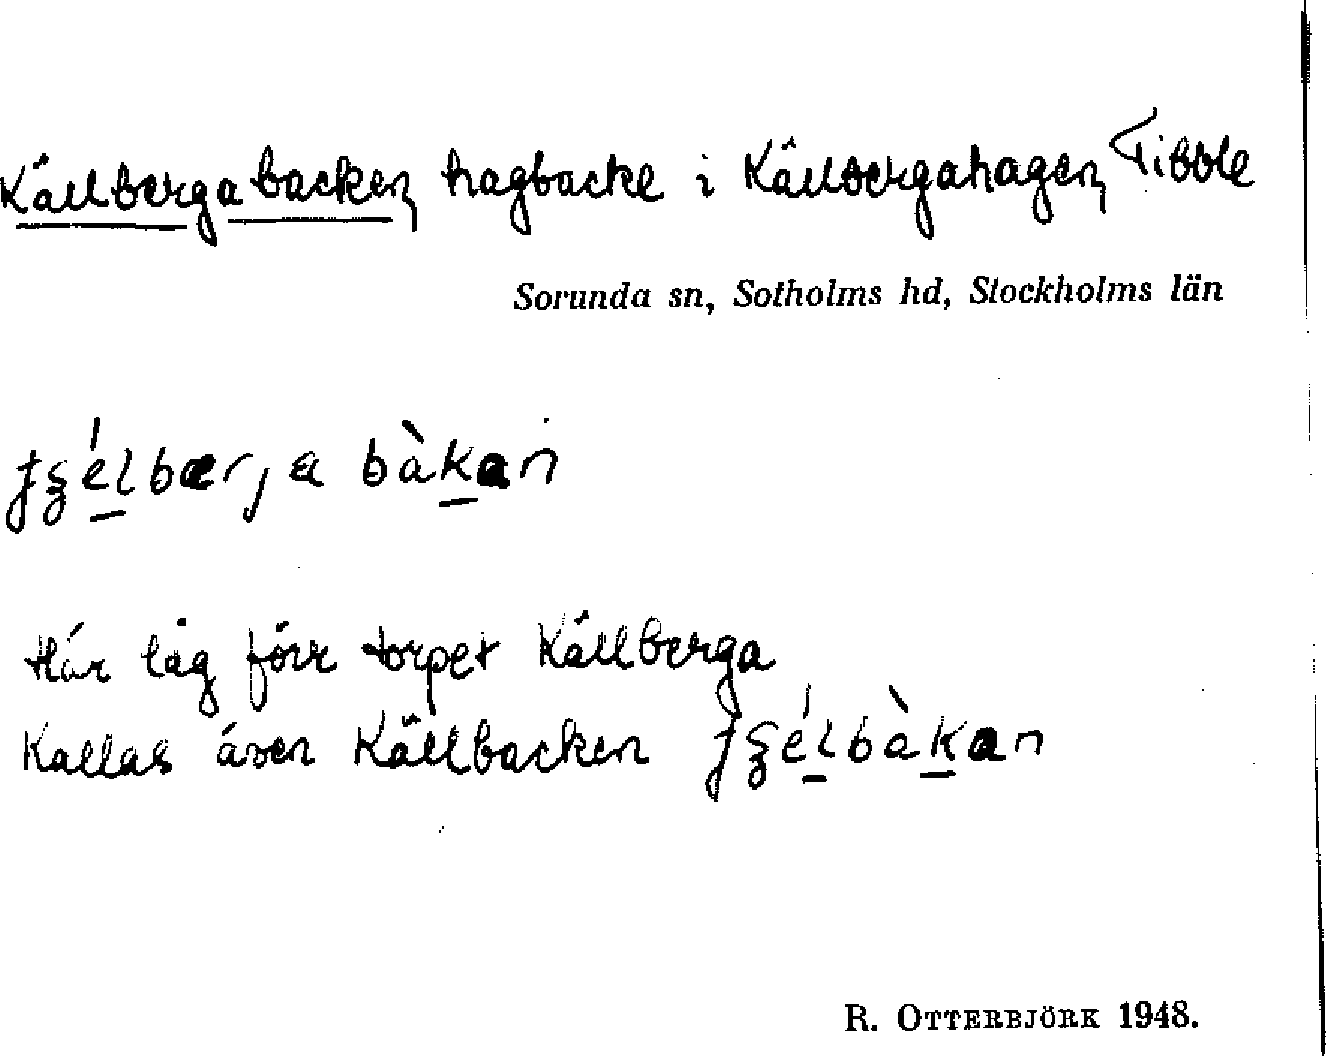 Källbergabacken, hagbacke i Källbergahagen, Tibble
Sorunda sn, Sotholms hd, Stockholms län
Här låg förr torpet Källberga
Kallas även Källbacken
R. OTTERBJÖRK 1948.